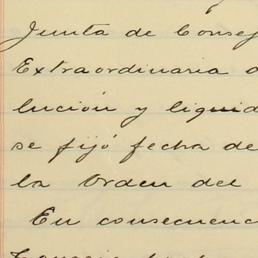 Junta de Consej
Extraordinaria d
lución y liquid
se fijó fecha de
la Orden del
En consecuenc